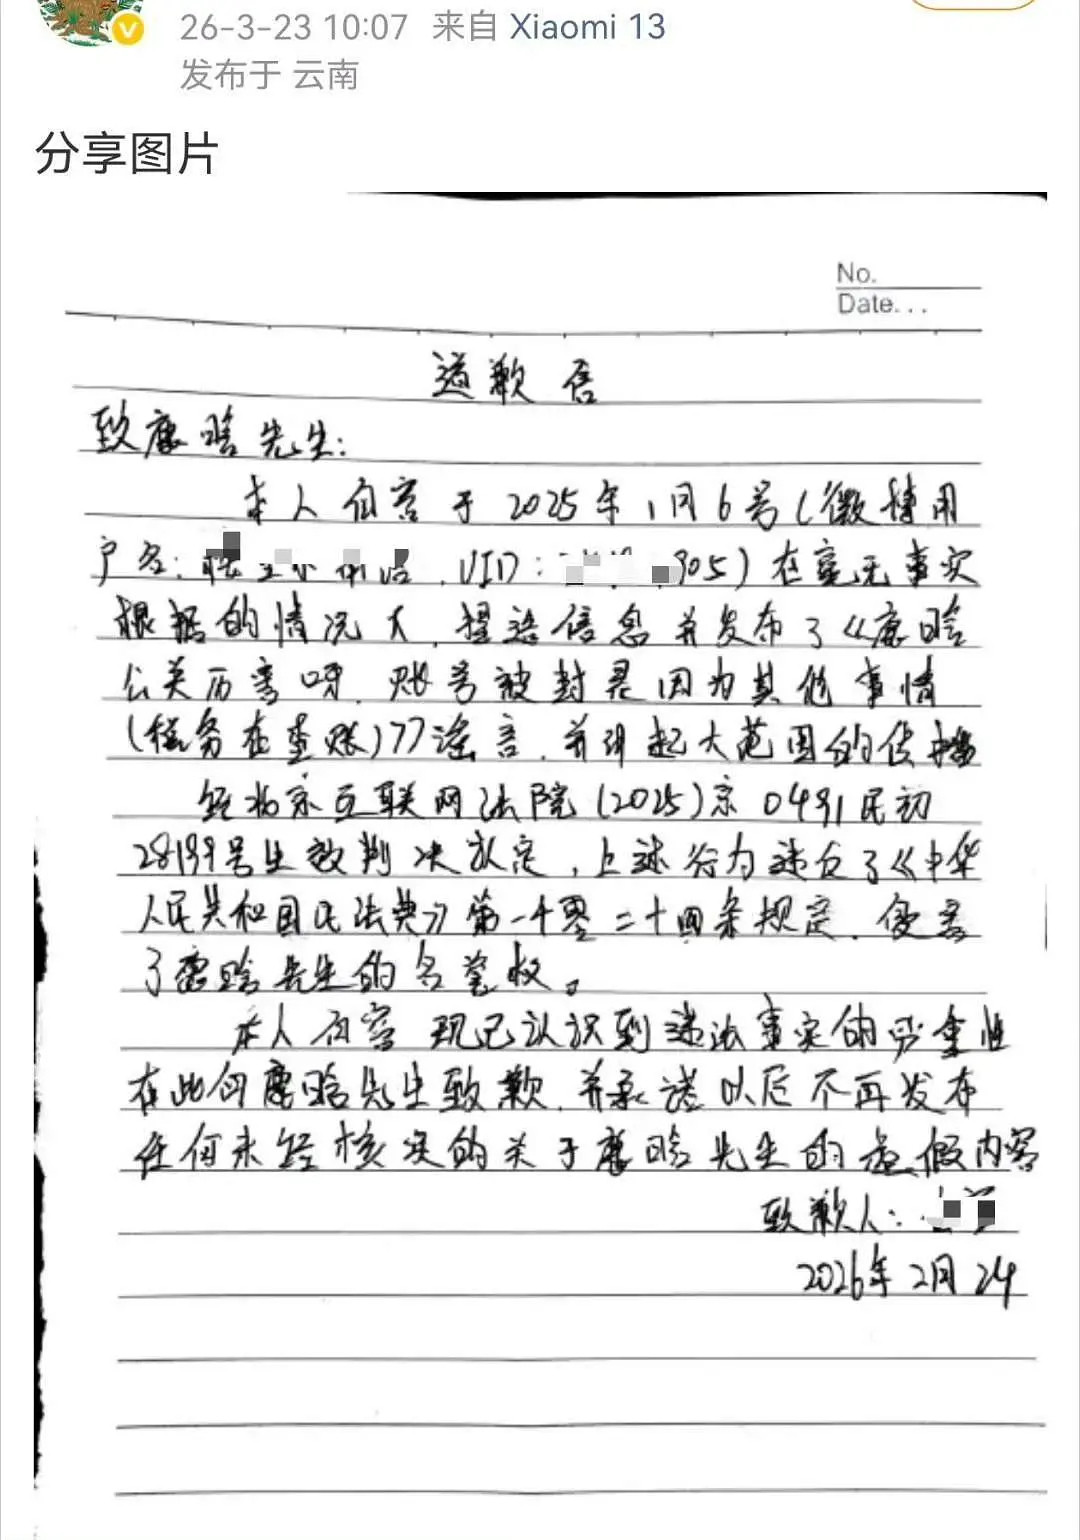 26-3-23 10:07 来自 Xiaomi 13
发布于 云南
分享图片
No.
Date...
道歉信
致康晗先生:
本人 于2025年1月6号(微博用
户名: , UID: 305)在毫无事实
根据的情况下,捏造信息并发布了《康晗
公关厉害呀,账号被封是因为其他事情
(税务在查账)??谣言,并引起大范围的传播
经北京互联网法院(2025)京0491民初
28199号生效判决认定,上述行为违反了《中华
人民共和国民法典》第一千零二十四条规定,侵害
了康晗先生的名誉权。
本人 现已认识到违法事实的严重性
在此向康晗先生致歉,并承诺以后不再发布
任何未经核实的关于康晗先生的虚假内容
致歉人:
2026年2月24